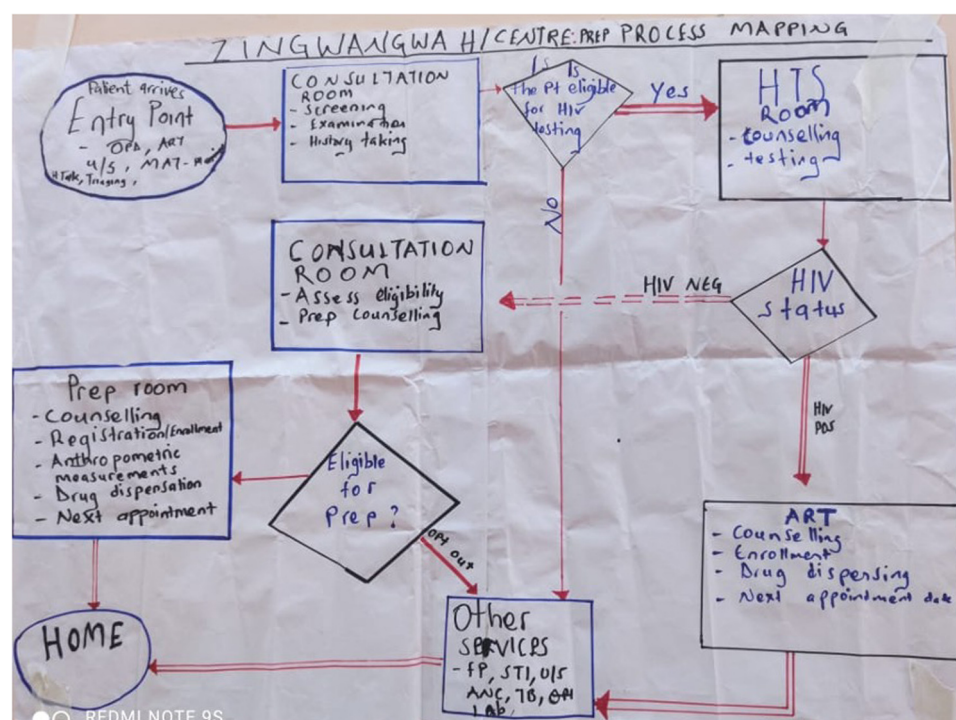 ZINGWANGWA H/CENTRE: PREP PROCESS MAPPING
Patient arrives
Entry Point
- OPD, ART
U/S, MAT-
H Talk, Triaging,
CONSULTATION
ROOM
- Screening
- Examination
- History taking
Is Is
The Pt eligible
for HIV
testing
Yes
NO
HTS
ROOM
- Counselling
- testing
HIV
status
HIV NEG
HIV
POS
CONSULTATION
ROOM
- Assess eligibility
- Prep Counselling
Eligible
for
Prep?
OPT OUT
Prep room
- Counselling
- Registration/Enrollment
- Anthropometric
measurements
- Drug dispensation
- Next appointment
HOME
Other
SERVICES
- FP, STI, U/S
ANC, TB,
LAB,
ART
- Counselling
- Enrollment
- Drug dispensing
- Next appointment date
REDMI NOTE 9S